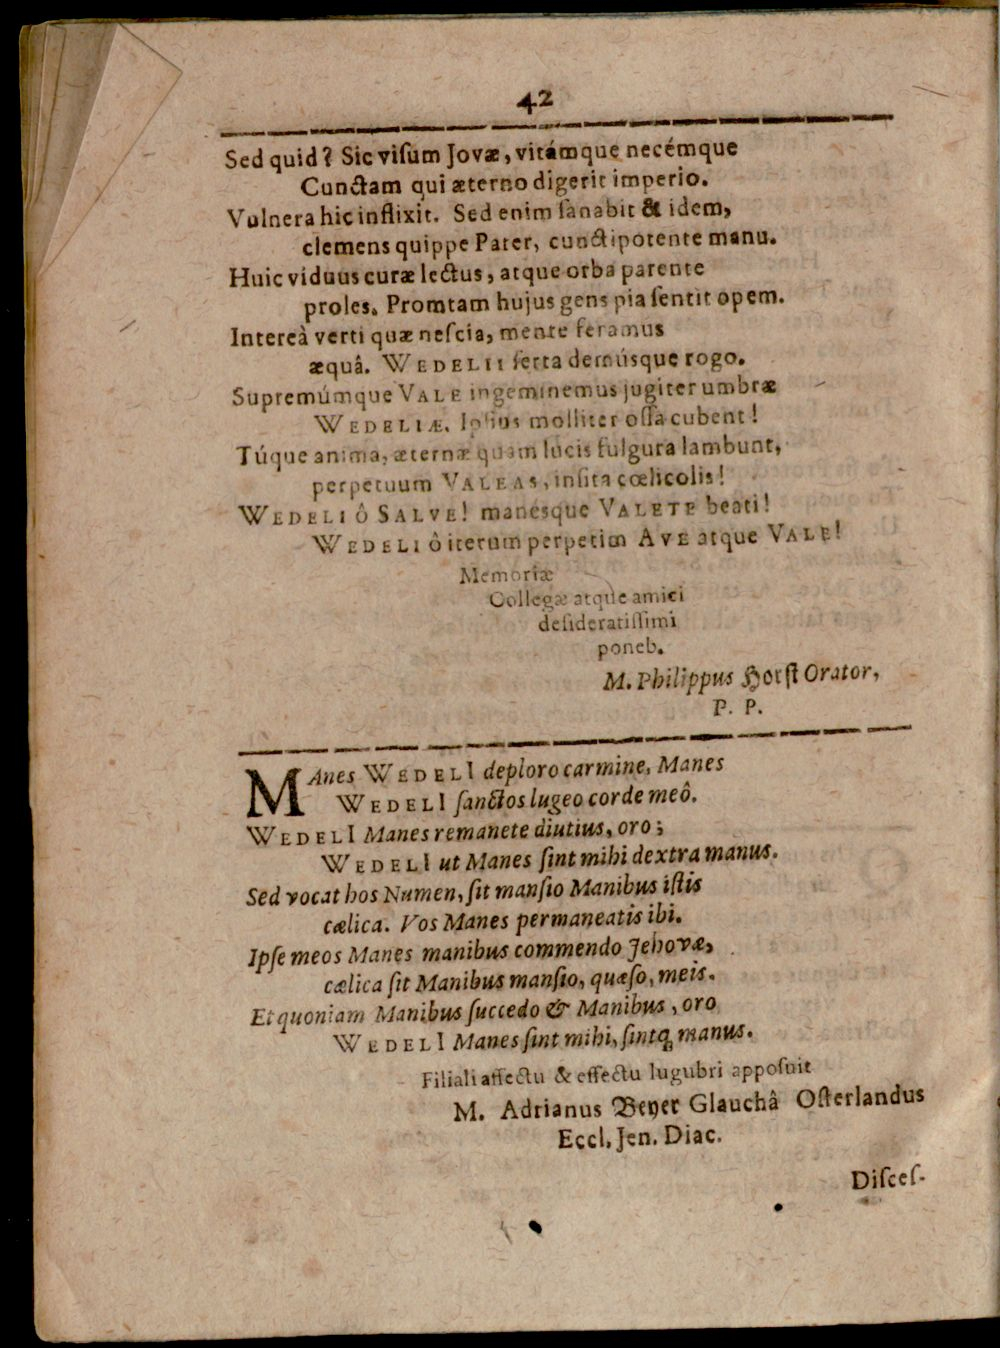 42
Sed quid? Sic viſum Jovæ, vitámque necémque
Cunctam qui æterno digerit imperio.
Vulnera hic inflixit. Sed enim ſanabit & idem,
clemens quippe Pater, cunctipotente manu.
Huic viduus curæ lectus, atque orba parente
proles. Promtam hujus gens pia ſentit opem.
Intereà verti quæ neſcia, mente feramus
æquâ. WEDELII ſerta demúsque rogo.
Supremúmque VALE ingeminemus jugiter umbræ
WEDELIÆ. Ipſius molliter oſſa cubent!
Túque anima, æternæ quam lucis fulgura lambunt,
perpetuum VALEAS, inſita cœlicolis!
WEDELI ô SALVE! manesque VALETE beati!
WEDELI ô iterum perpetim AVE atque VALE!
Memoriæ
Collegæ atque amici
deſideratiſſimi
poneb.
M. Philippus Horſt Orator,
P. P.
MAnes WEDELI deploro carmine, Manes
WEDELI ſanctos lugeo corde meô.
WEDELI Manes remanete diutius, oro;
WEDELI ut Manes ſint mihi dextra manus.
Sed vocat hos Numen, ſit manſio Manibus iſtis
cælica. Vos Manes permaneatis ibi.
Ipſe meos Manes manibus commendo Jehovæ,
cælica ſit Manibus manſio, quæſo, meis.
Et quoniam Manibus ſuccedo & Manibus, oro
WEDELI Manes ſint mihi, ſintq́; manus.
Filiali affectu & effectu lugubri appoſuit
M. Adrianus Beyer Glauchâ Oſterlandus
Eccl. Jen. Diac.
Diſceſ-